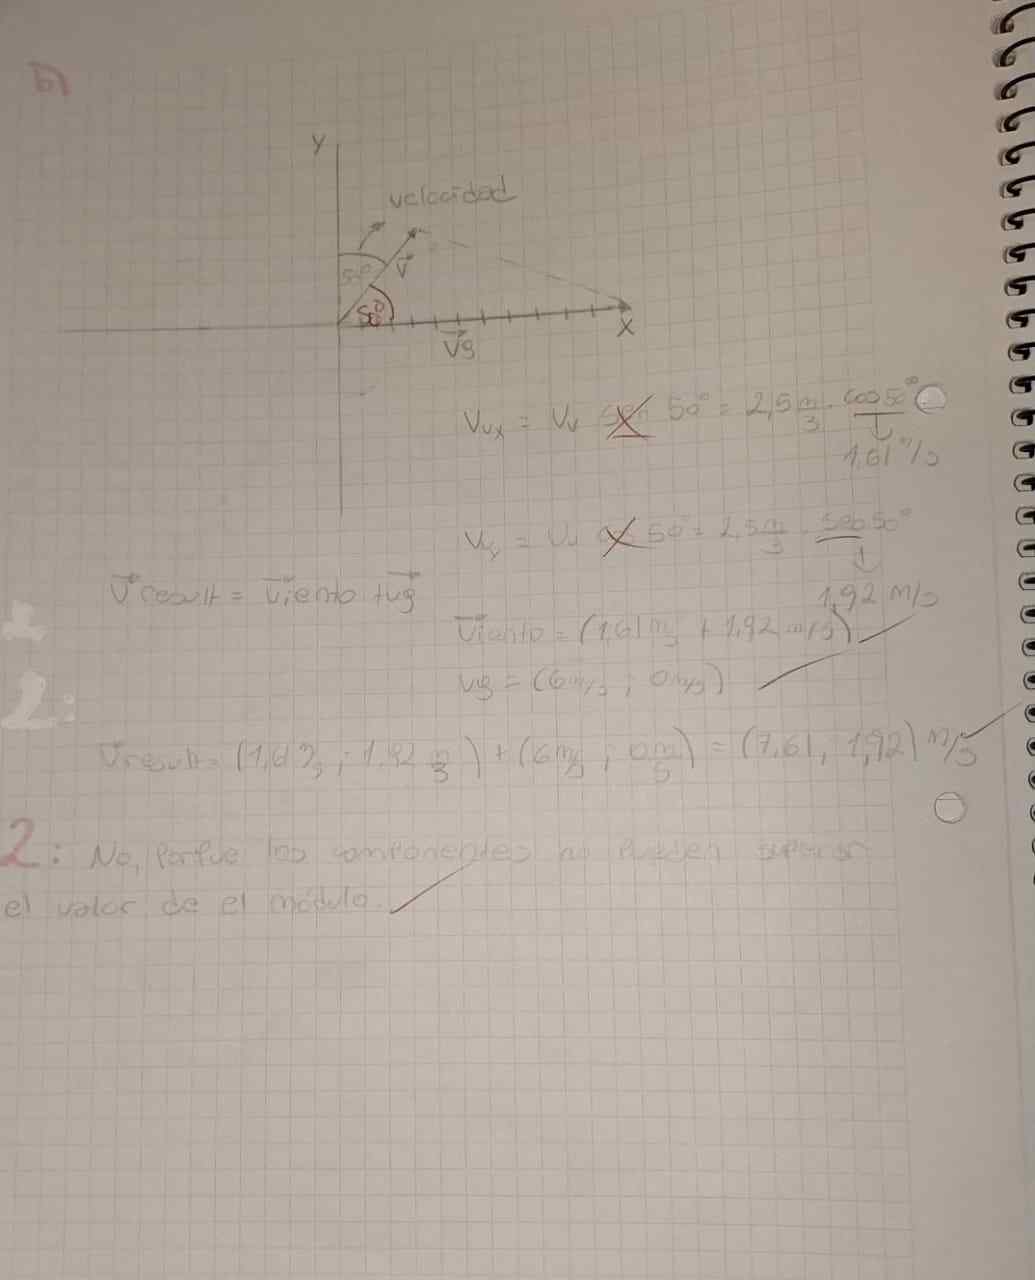 b)
Y
velocidad
50°
V
50°
X
Vg
Vvx = Vv sen 50° = 2,5 m/s . cos 50°
1,61 m/s
Vvy = Vv cos 50° = 2,5 m/s . sen 50°
1,92 m/s
V result = Viento + Vg
Viento = (1,61 m/s + 1,92 m/s)
Vg = (6 m/s ; 0 m/s)
V result = (1,61 m/s ; 1,92 m/s) + (6 m/s ; 0 m/s) = (7,61, 1,92) m/s
2: No, Porque los componentes no pueden superar
el valor de el modulo.